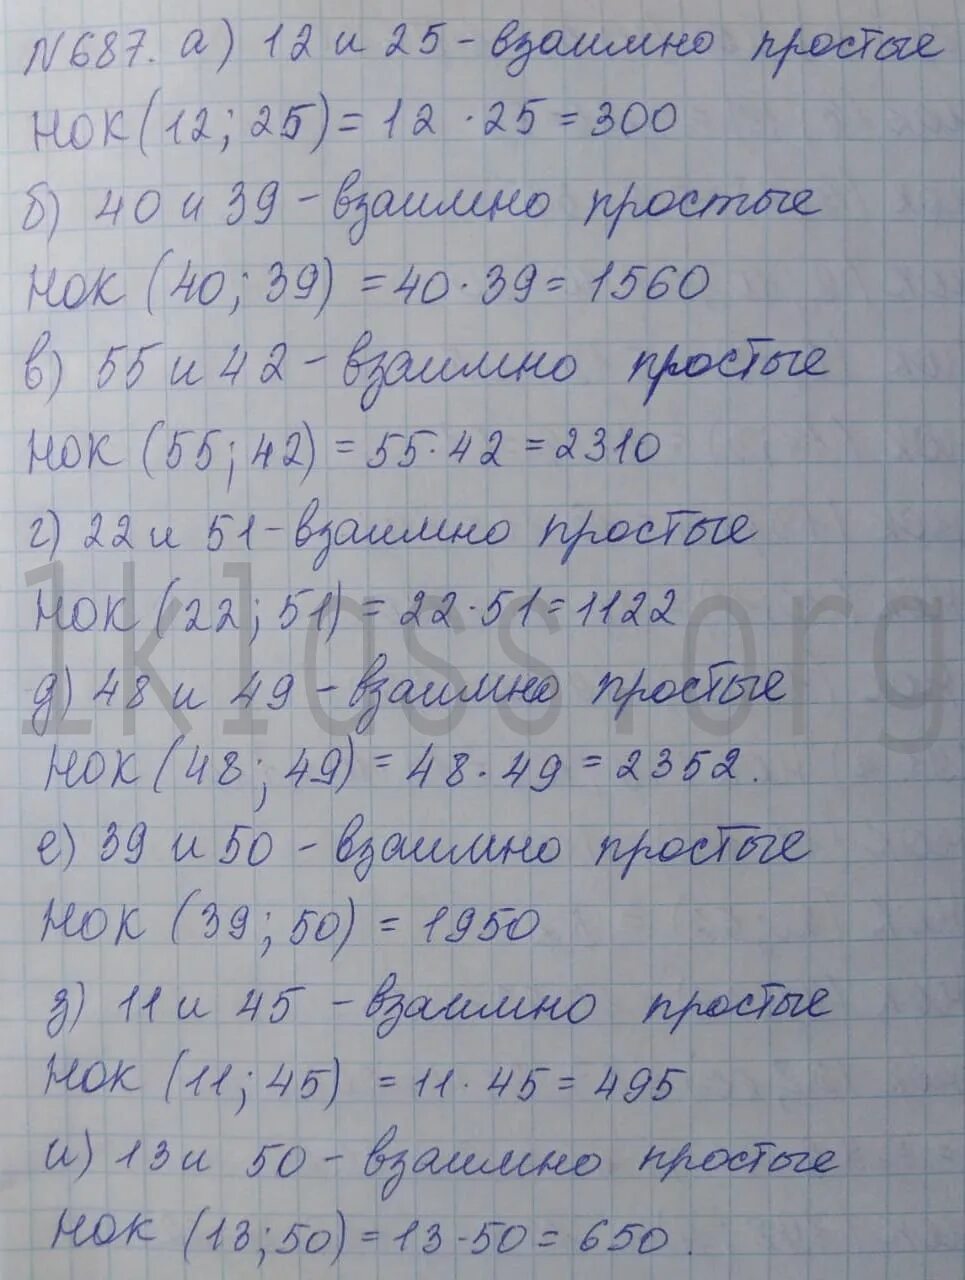 N687. а) 12 и 25 - взаимно простые
НОК (12; 25) = 12 · 25 = 300
б) 40 и 39 - взаимно простые
НОК (40; 39) = 40 · 39 = 1560
в) 55 и 42 - взаимно простые
НОК (55; 42) = 55 · 42 = 2310
г) 22 и 51 - взаимно простые
НОК (22; 51) = 22 · 51 = 1122
д) 48 и 49 - взаимно простые
НОК (48; 49) = 48 · 49 = 2352.
е) 39 и 50 - взаимно простые
НОК (39; 50) = 1950
з) 11 и 45 - взаимно простые
НОК (11; 45) = 11 · 45 = 495
и) 13 и 50 - взаимно простые
НОК (13; 50) = 13 · 50 = 650.
1klass.org